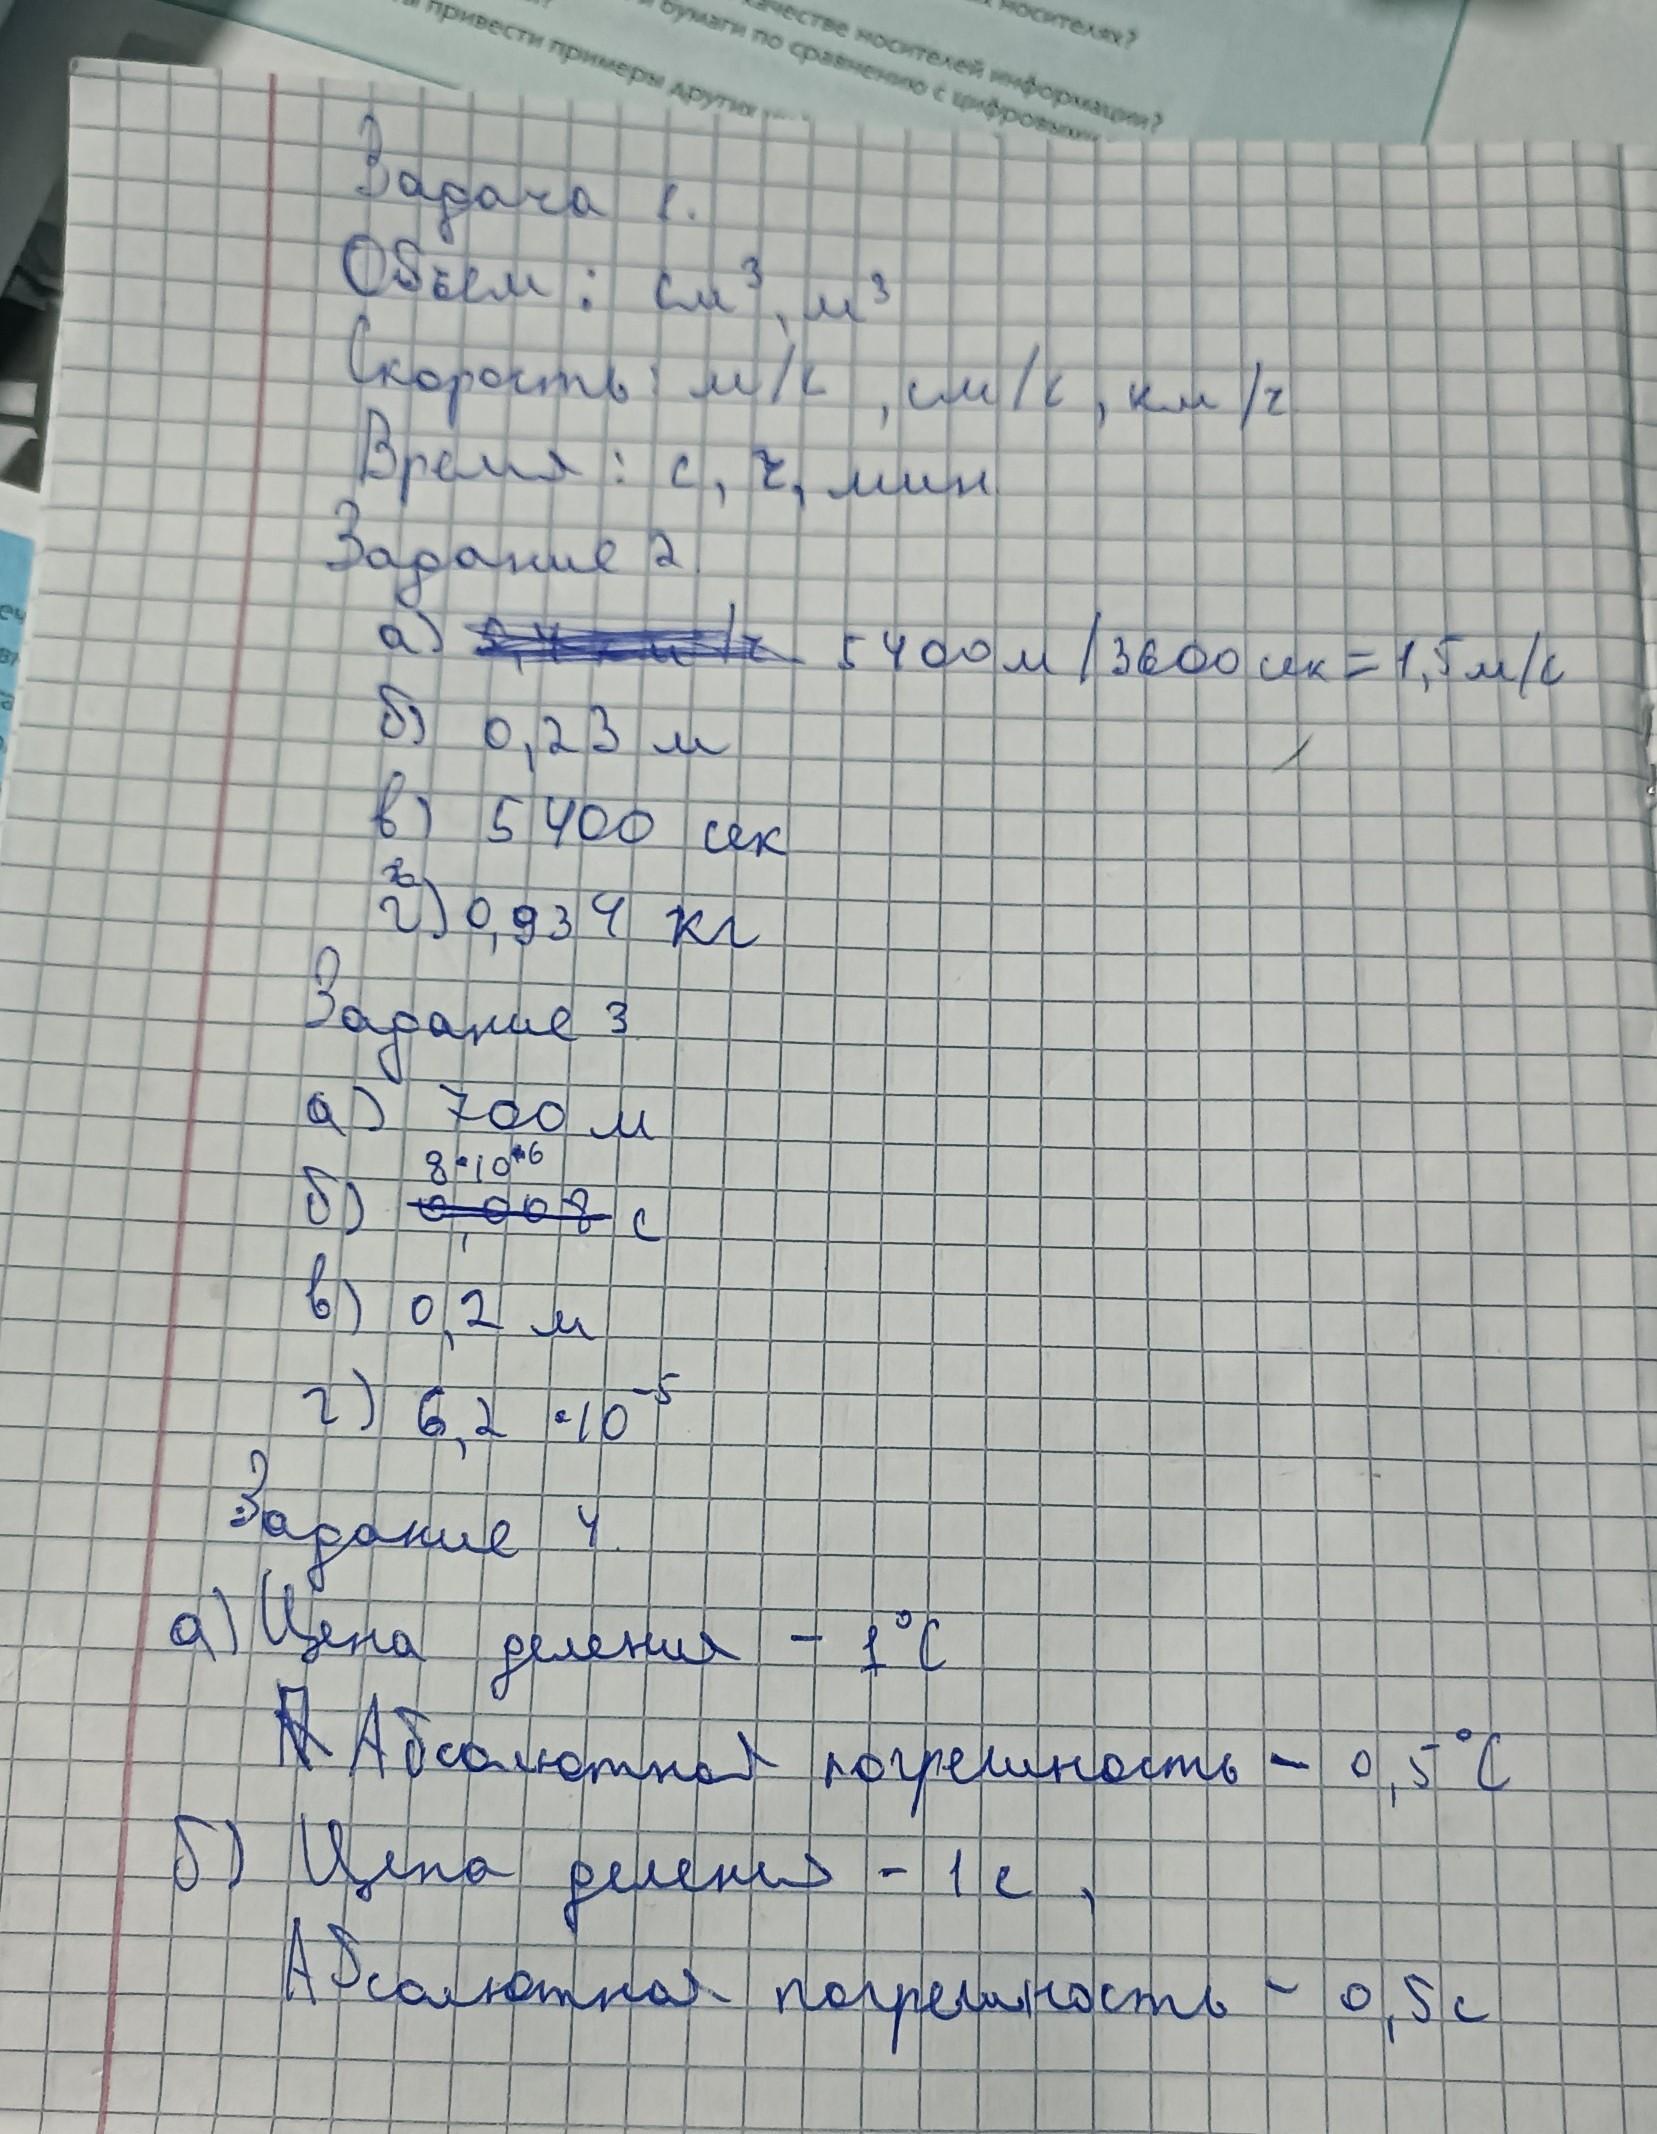 носителях?
качестве носителей информации?
бумаги по сравнению с цифровыми
привести примеры других
Задача 1.
Объем: см³, м³
Скорость: м/с, см/с, км/ч
Время: с, ч, мин
Задание 2.
а) 5400м/3600сек=1,5м/с
б) 0,23 м
в) 5400 сек
г) 0,934 кг
Задание 3
а) 700 м
8·10⁻⁶
б) 0,008 с
в) 0,2 м
г) 6,2 ·10⁻⁵
Задание 4.
а) Цена деления - 1°С
Абсолютная погрешность - 0,5°С
б) Цена деления - 1 с,
Абсолютная погрешность - 0,5с